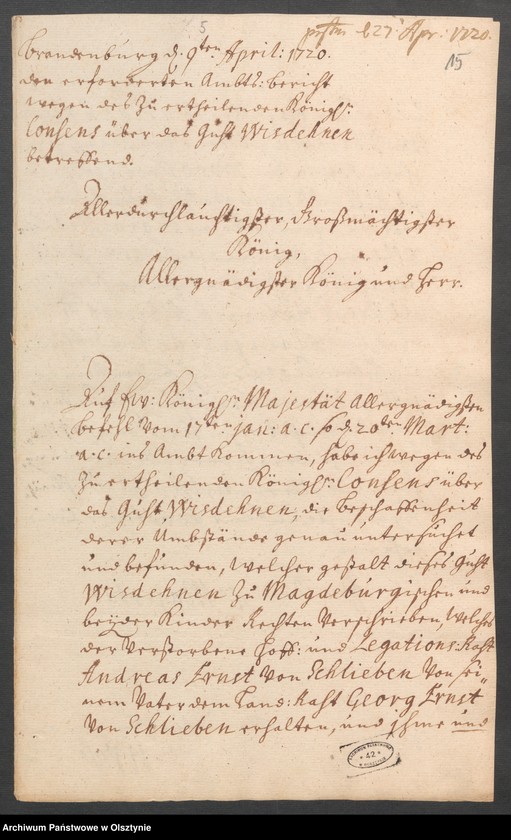 5
prstm d 27t Apr: 1720.
15
Brandenburg d. 9ten April: 1720.
den erforderten Ambts: bericht
wegen des zu ertheilenden Königl:
Consens über das Guht Wisdehnen
betreffend.
Allerdurchlauchtigster, Großmächtigster
König,
Allergnädigster König und Herr.
Auf Ew: Königl: Majestät Allergnädigsten
befehl vom 17ten Jan: a. c. so d. 20ten Mart:
a. c. ins Ambt kommen, habe ich wegen des
zu ertheilenden Königl: Consens über
das Guht Wisdehnen, die beschaffenheit
derer Umbstände genau untersuchet
und befunden, welcher gestalt dieses Guht
Wisdehnen zu Magdeburgischen und
beyder Kinder Rechten verschrieben, welches
der verstorbene Hoff: und Legations: Raht
Andreas Ernst von Schlieben von sei-
nem Vater dem Land: Raht Georg Ernst
von Schlieben erhalten, und ihme und
42
Archiwum Państwowe w Olsztynie